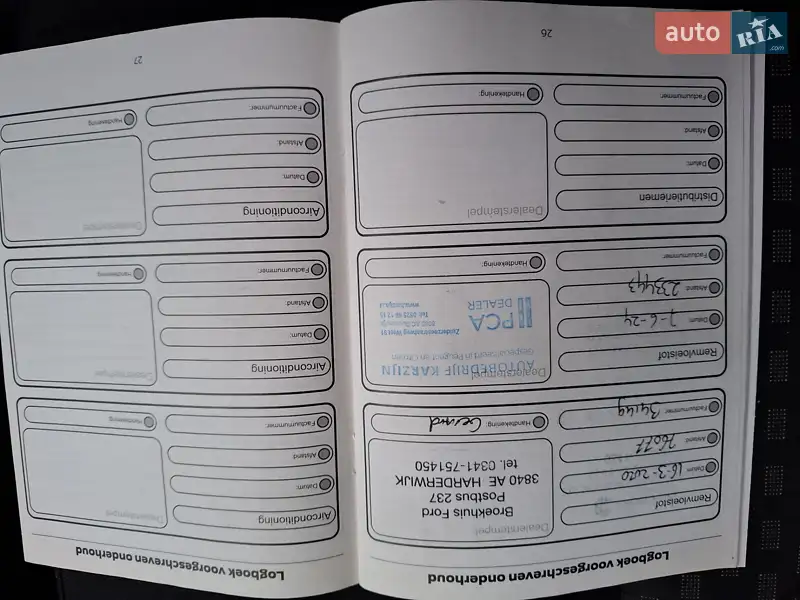 auto RIA .com
Logboek voorgeschreven onderhoud
Remvloeistof
Datum: 16-3-2020
Afstand: 76077
Factuurnummer:
Dealerstempel
Broekhuis Ford
Postbus 237
3840 AE HARDERWIJK
tel. 0341-751450
Handtekening:
Remvloeistof
Datum: 7-6-24
Afstand: 233443
Factuurnummer:
Dealerstempel
AUTOBEDRIJF KARZIJN
Gespecialiseerd in Peugeot en Citroen
PCA
DEALER
Handtekening:
Distributieriemen
Datum:
Afstand:
Factuurnummer:
Dealerstempel
Handtekening:
26
Logboek voorgeschreven onderhoud
Airconditioning
Datum:
Afstand:
Factuurnummer:
Dealerstempel
Handtekening:
Airconditioning
Datum:
Afstand:
Factuurnummer:
Dealerstempel
Handtekening:
Airconditioning
Datum:
Afstand:
Factuurnummer:
Dealerstempel
Handtekening:
27